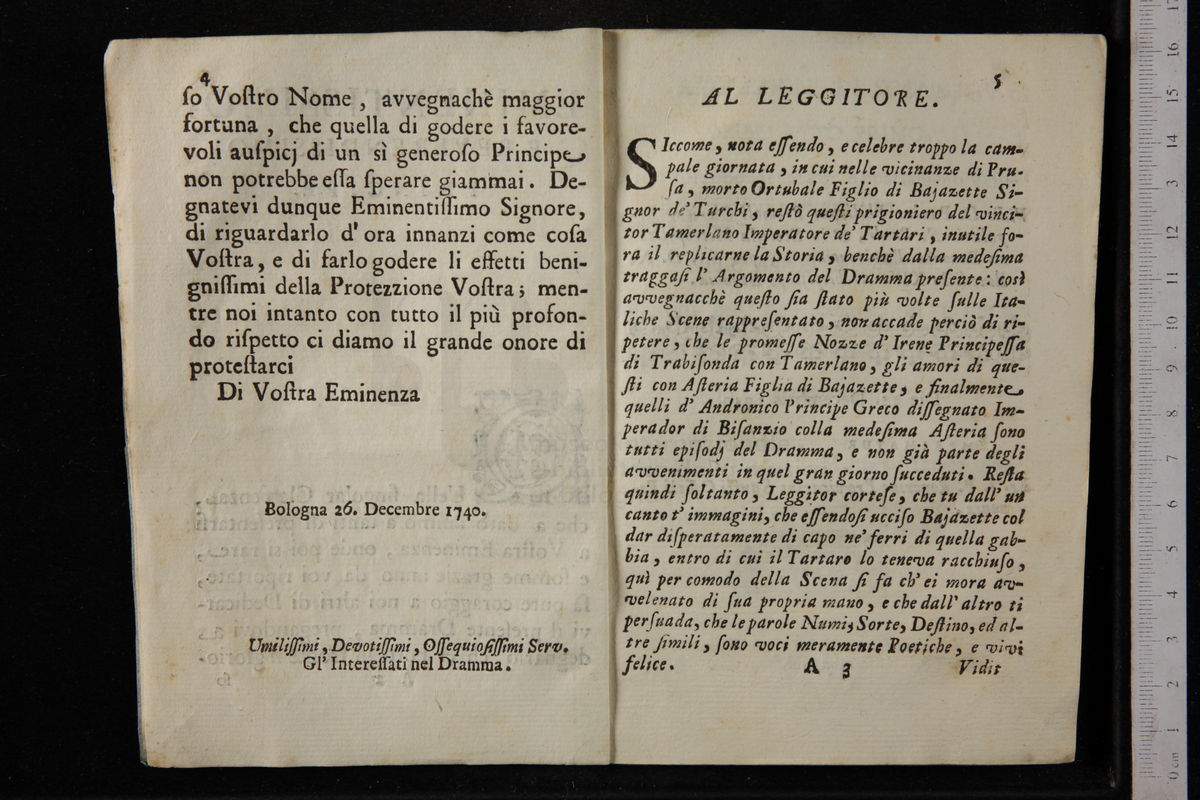 4
ſo Voſtro Nome , avvegnachè maggior
fortuna , che quella di godere i favore-
voli auſpicj di un sì generoſo Principe
non potrebbe eſſa ſperare giammai. De-
gnatevi dunque Eminentiſſimo Signore,
di riguardarlo d' ora innanzi come coſa
Voſtra, e di farlo godere li effetti beni-
gniſſimi della Protezzione Voſtra; men-
tre noi intanto con tutto il più profon-
do riſpetto ci diamo il grande onore di
proteſtarci
Di Voſtra Eminenza
Bologna 26. Decembre 1740.
Umiliſſimi, Devotiſſimi, Oſſequioſiſſimi Serv.
Gl' Intereſſati nel Dramma.
5
AL LEGGITORE.
SIccome, nota eſſendo, e celebre troppo la cam-
pale giornata, in cui nelle vicinanze di Pru-
ſa, morto Ortubale Figlio di Bajazette Si-
gnor de' Turchi, reſtò queſti prigioniero del vinci-
tor Tamerlano Imperatore de' Tartari, inutile fo-
ra il replicarne la Storia, benchè dalla medeſima
traggaſi l' Argomento del Dramma preſente: così
avvegnacchè queſto ſia ſtato più volte ſulle Ita-
liche Scene rappreſentato, non accade perciò di ri-
petere, che le promeſſe Nozze d' Irene Principeſſa
di Trabiſonda con Tamerlano, gli amori di que-
ſti con Aſteria Figlia di Bajazette, e finalmente
quelli d' Andronico Principe Greco diſſegnato Im-
perador di Biſanzio colla medeſima Aſteria ſono
tutti epiſodj del Dramma, e non già parte degli
avvenimenti in quel gran giorno ſucceduti. Reſta
quindi ſoltanto, Leggitor corteſe, che tu dall' un
canto t' immagini, che eſſendoſi ucciſo Bajazette col
dar diſperatamente di capo ne' ferri di quella gab-
bia, entro di cui il Tartaro lo teneva racchiuſo,
quì per comodo della Scena ſi fa ch' ei mora av-
velenato di ſua propria mano, e che dall' altro ti
perſuada, che le parole Numi, Sorte, Deſtino, ed al-
tre ſimili, ſono voci meramente Poetiche, e vivi
felice. A 3 Vidit